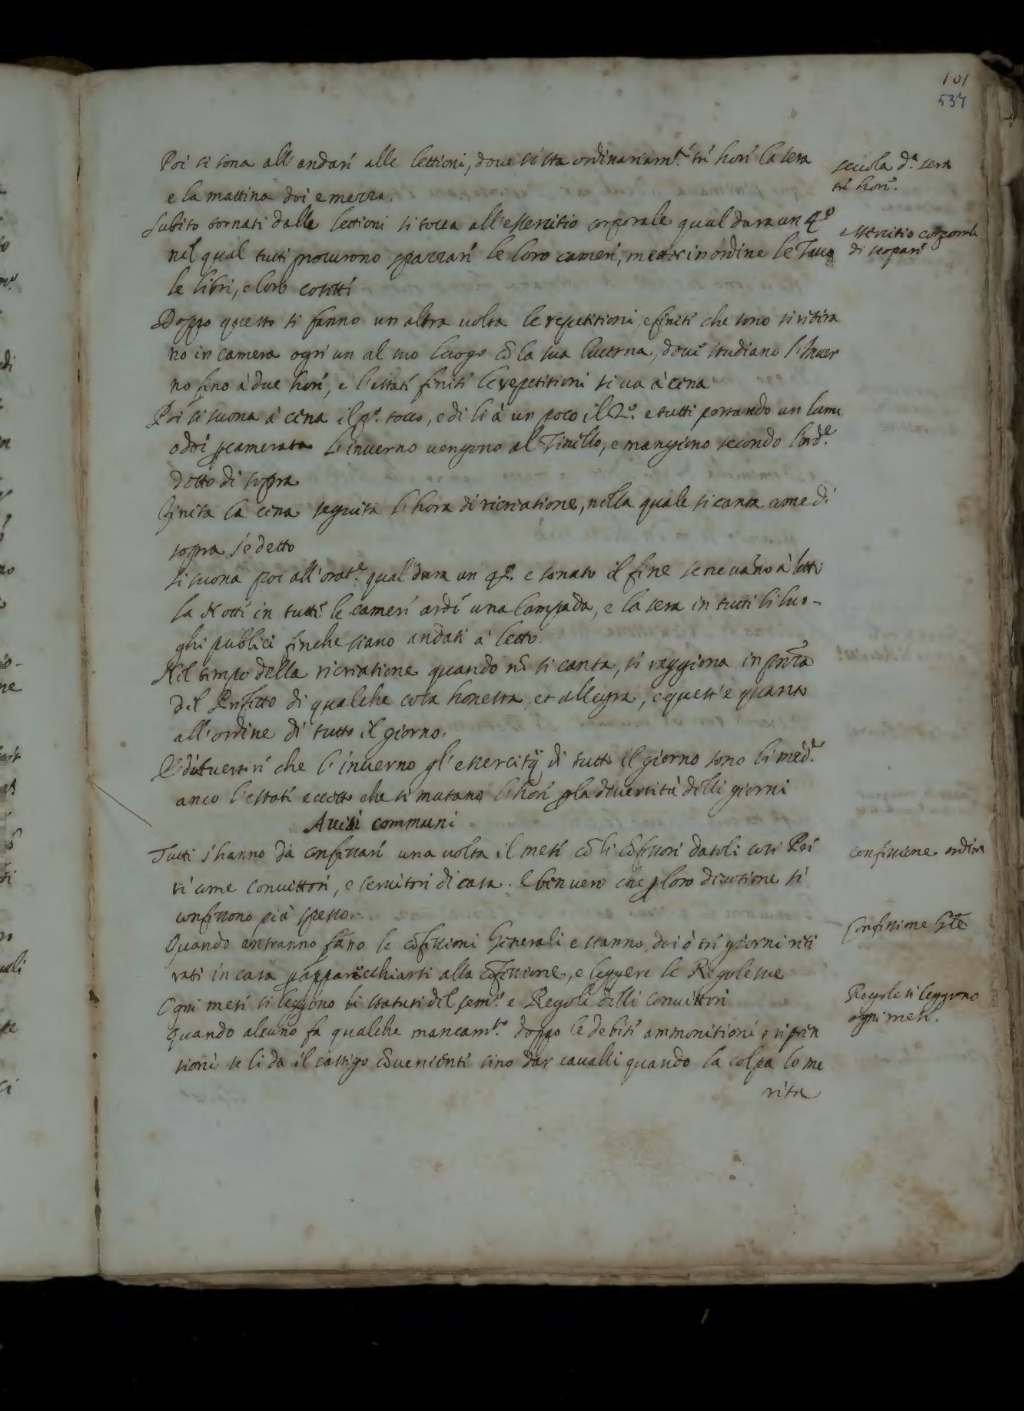 101
537
Poi si sona all'andare alle lettioni, doue si sta ordinariam.te tre hore la sera
e la mattina doi e mezza.
scuola d.a sera
tre hore.
Subito tornati dalle lettioni si tocca all'essercitio corporale qual dura un q.o
nel qual tutti procurono spazzare le loro camere, metter in ordine le Tauo
le libri, e loro cosette
essercitio corporale
di scopare
Doppo questo si fanno un altra uolta le repetitioni, e finite che sono si ritira
no in camera ogn'un al suo luogo cō la sua lucerna, doue studiano l'Inuer
no fino à due hore, e l'estate finite le repetitioni si ua à cena
Poi si suona à cena il p.o tocco, e di li à un poco il 2.o e tutti portando un lume
o doi p camerata l'inuerno uengono al Tinello, e mangiono secondo l'ord.e
detto di sopra
Finita la cena seguita l'hora di ricreatione, nella quale si canta come di
sopra s'è detto
Si suona poi all'orat.e qual dura un q.o e sonato il fine se ne uāno à letto
La Notte in tutte le camere arde una lampada, e la sera in tutti li luo-
ghi publici finche siano andati a letto.
Nel tempo della ricreatione quando nō si canta, si raggiona in pñza
del Prefetto di qualche cosa honesta, et allegra, e quest'e quanto
all'ordine di tutto il giorno.
E d'Auertire che l'inuerno gl'essercitij di tutto il giorno sono li med.i
anco l'estate eccetto che si mutano l'hore p la diuersità delli giorni
Auisi communi
Tutti s'hanno da confessare una uolta il mese cō li cōfessori datoli cosi Pre
ti come conuittori, e seruitori di casa. E ben uero che p loro diuotione si
confessono più spesso.
confessione ordin
Quando entranno fāno le cōfessioni Generali e stanno doi ò tre giorni riti
rati in casa p apparecchiarsi alla cōfessione, e leggere le Regole sue
Confessione Gñle
Ogni mese si leggono li statuti del sem.o e Regole delli conuittori
Regole si leggono
ogni mese.
Quando alcuno fa qualche mancam.to doppo le debite ammonitioni e ripren
sioni se li da il castigo cōueniente sino dar caualli quando la colpa lo me
rita